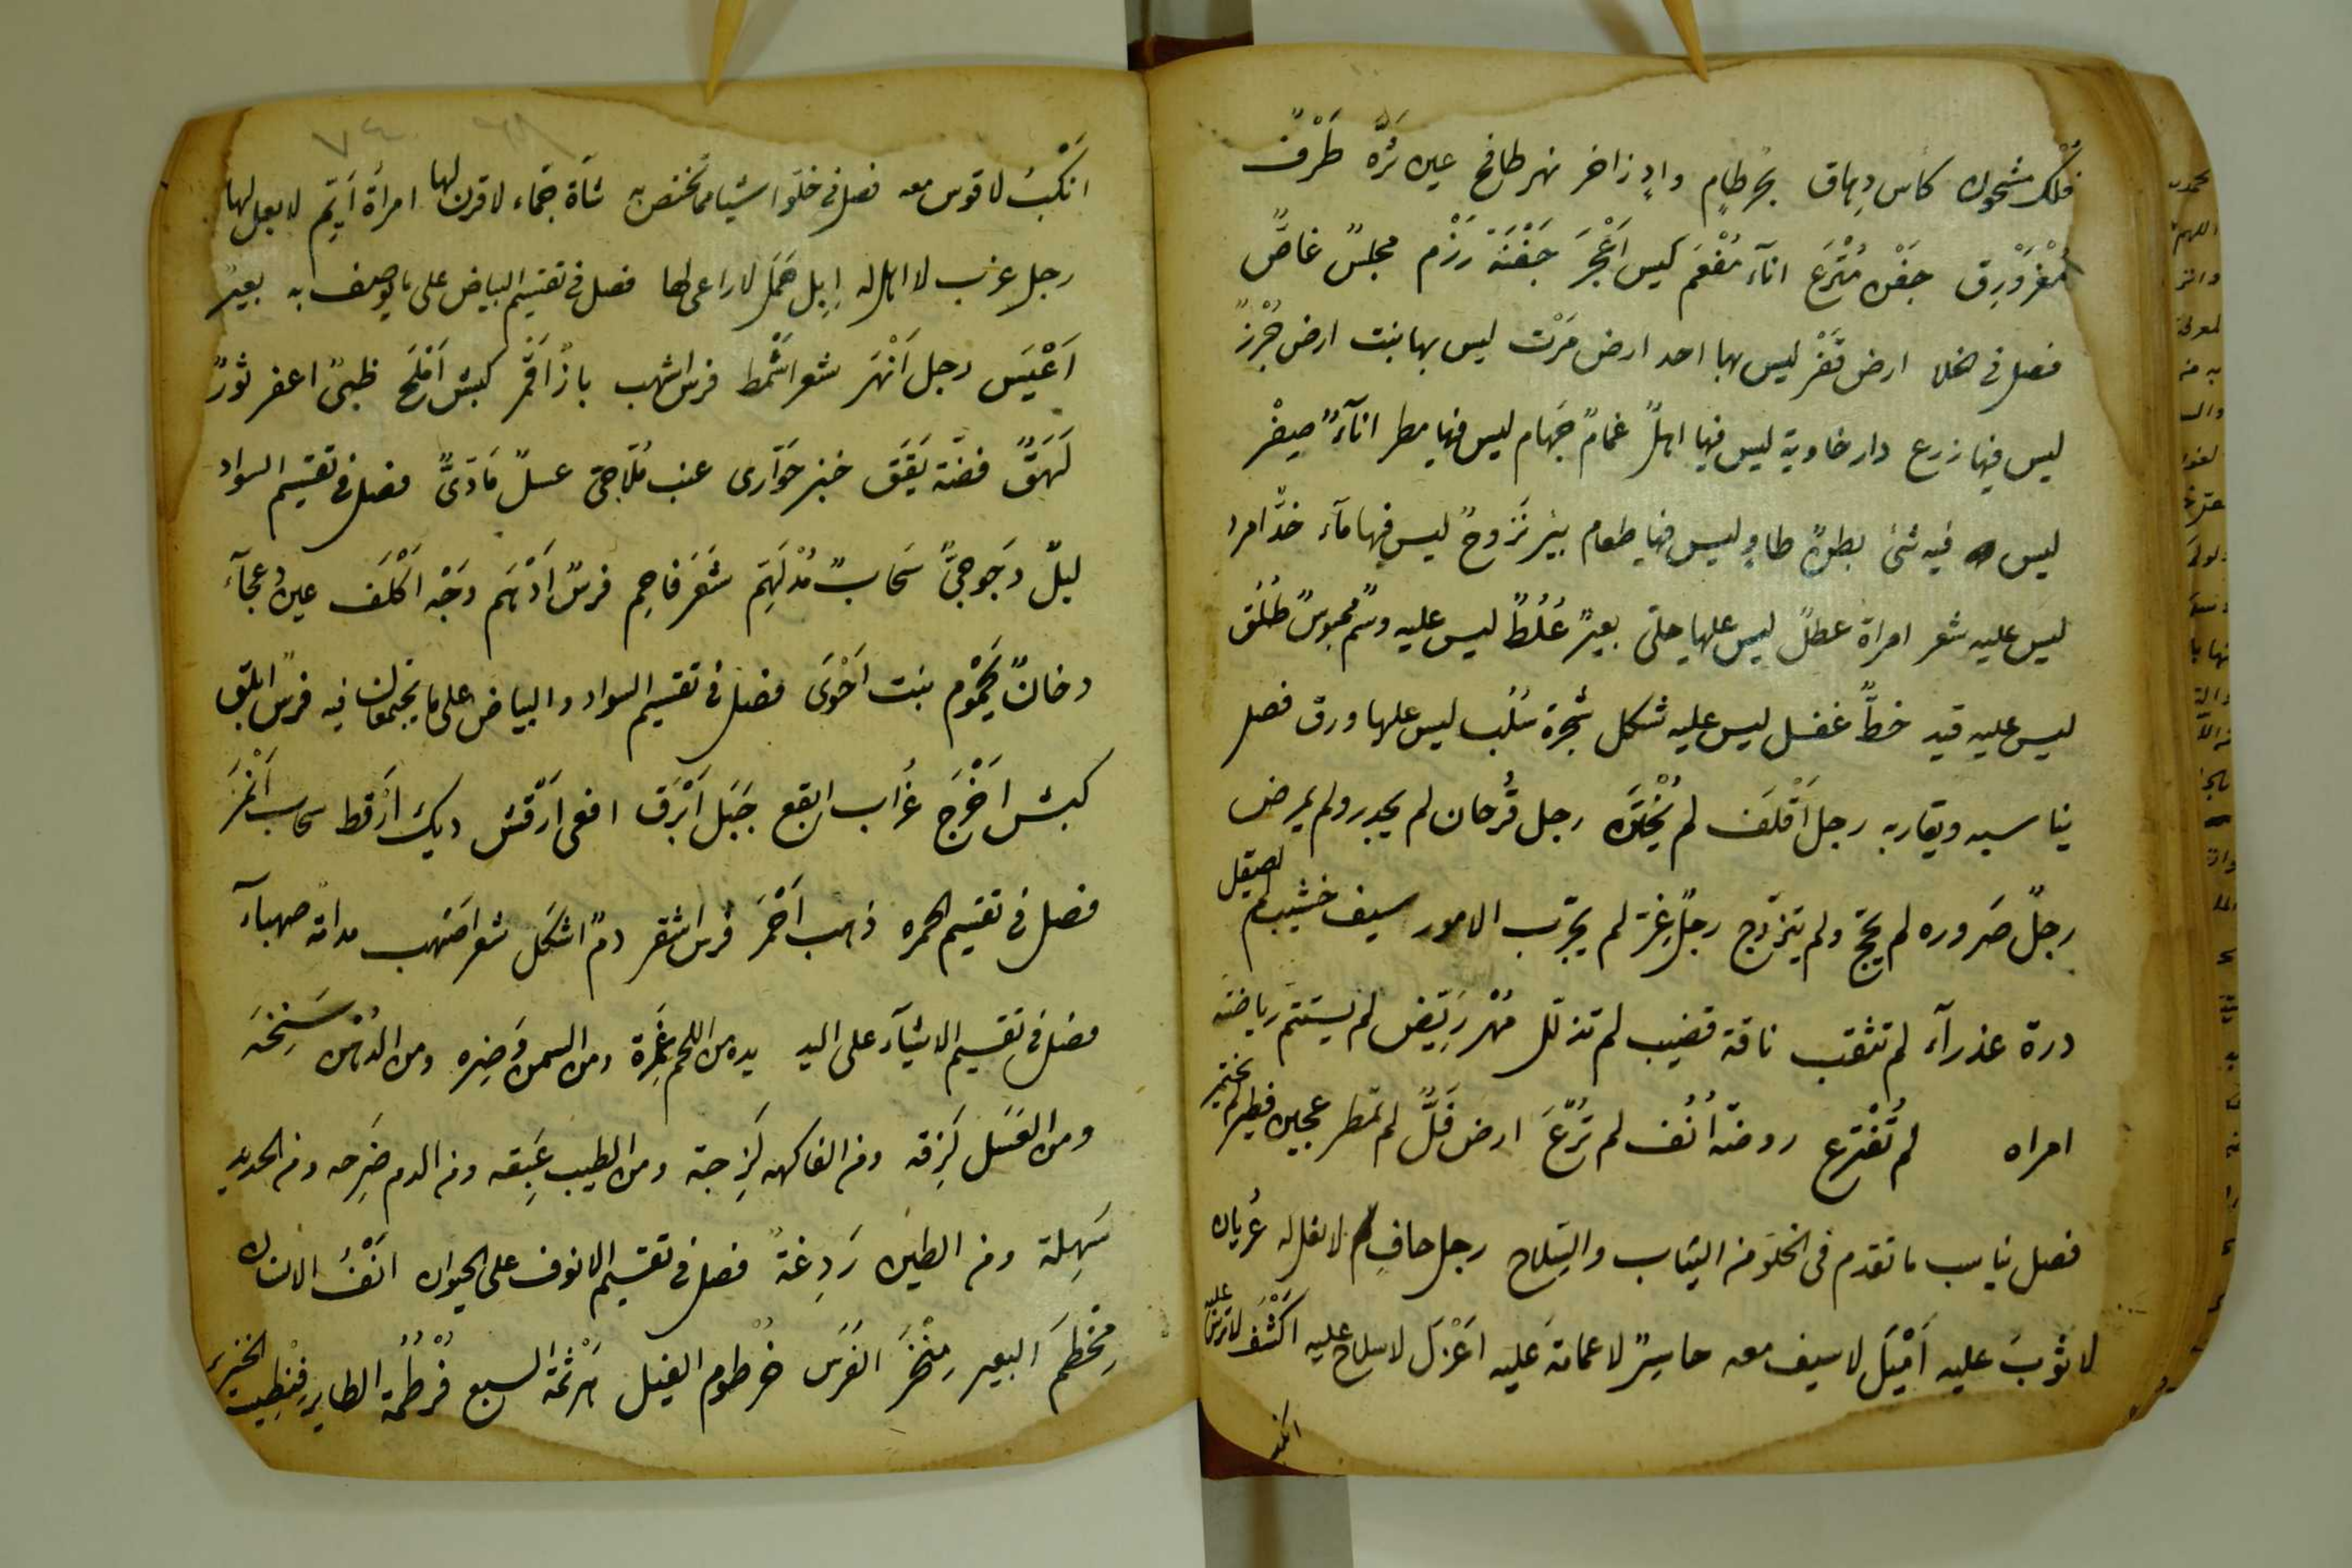 فُلْك مشحون كاس دِهاق بحر طامٍ وادٍ زاخر نهر طافح عين ثرّة طَرْفٌ
مُغْرَوْرِق جَفْن مُتْرَع اناء مُفْعَم كيس اَعْجَر جَفْنَة رَذْم مجلسٌ غاصٌّ
فصل في الخلا ارض قَفْر ليس بها احد ارض مَرْت ليس بها نبت ارض جُرُز
ليس فيها زرع دار خاوية ليس فيها اهلٌ غمامٌ جَهام ليس فيها مطر اناءٌ صِفْر
ليس فيه شئ بطنٌ طاوٍ ليس فيها طعام بير نَزوحٌ ليس فيها ماء خدٌّ امرد
ليس عليه شعر امراة عطلٌ ليس عليها حلى بعيرٌ عُلُطٌ ليس عليه وسْم محبوسٌ طُلُق
ليس عليه قيد خطٌّ غفل ليس عليه شكل شجرة سُلُب ليس عليها ورق فصل
يناسبه ويقاربه رجل اَقْلَف لم يُخْتَن رجل قُرحان لم يجدر ولم يمرض
رجلٌ صَروره لم يحجّ ولم يتزوّج رجلٌ غِرّ لم يجرّب الامور سيف خشيب لم يصقل
درة عذرآء لم تثقب ناقة قضيب لم تذلل مُهْر رَيّض لم يستتم رياضته
امراه لم تُفْترع روضة اُنُف لم تُرْعَ ارض فَلٌّ لم تمطر عجين فطير لم يختمر
فصل يناسب ما تقدم في الخلوّ من الثياب والسِّلاح رجل حافٍ لا نعل له عُريان
لا ثوبَ عليه اَمْيَل لا سيف معه حاسِرٌ لا عمامة عليه اَعْزل لا سلاح عليه اَكْشَف لا ترس عليه
انكب
اَنْكَبُ لا قوس معه فصل في خلوّ اشيا مما تختص به شاة جمّاء لا قرن لها امرأة اَيِّم لا بعل لها
رجل عزب لا اهل له اِبِل هَمَل لا راعى لها فصل في تقسيم البياض على ما يوصف به بعيرٌ
اَعْيَس رجل اَنْهَر شعر اَشْمَط فرس اشهب باز اَقْمَر كبش اَمْلَح ظبىٌ اعفر ثورٌ
لَهَقٌ فضّة يَقَق خبز حُوّارى عنب مُلاحِىّ عسلٌ مَاذىٌّ فصل في تقسيم السواد
ليلٌ دَجوجِىٌّ سَحابٌ مُدْلَهِمّ شَعَر فاحِم فرسٌ اَدْهَم وَجْه اَكْلَف عين دَعجآء
دخانٌ يَحْمُوم نبت اَحْوَى فصل في تقسيم السواد والبياض على ما يجتمعان فيه فرسٌ ابلق
كبش اَخْرَج غُراب ابقع جَبَل اَبْرَق افعى اَرْقش ديك اَرْقط سحاب اَنْمَر
فصل في تقسيم الحمره ذهب اَحْمَر فرس اشقر دمٌ اشكل شعر اَصْهب مدامة صهبآء
فصل في تقسيم الاشيآء على اليد يده من اللحم غَمِرَة ومن السمن وَضِره ومن الدُّهْن سَنِخَه
ومن العَسَل لَزِقه ومن الفاكهه لَزِجة ومن الطيب عَبِقه ومن الدم ضَرِجه ومن الحديد
سَهِلة ومن الطين رَدِغةٌ فصل في تقسيم الانوف على الحيوان اَنْفُ الانسان
مِخْطَم البعير مِنْخَر الفَرَس خُرطوم الفيل هَرْثمة السبع قُرْطُمة الطاير فِنْطِيسة الخنزير